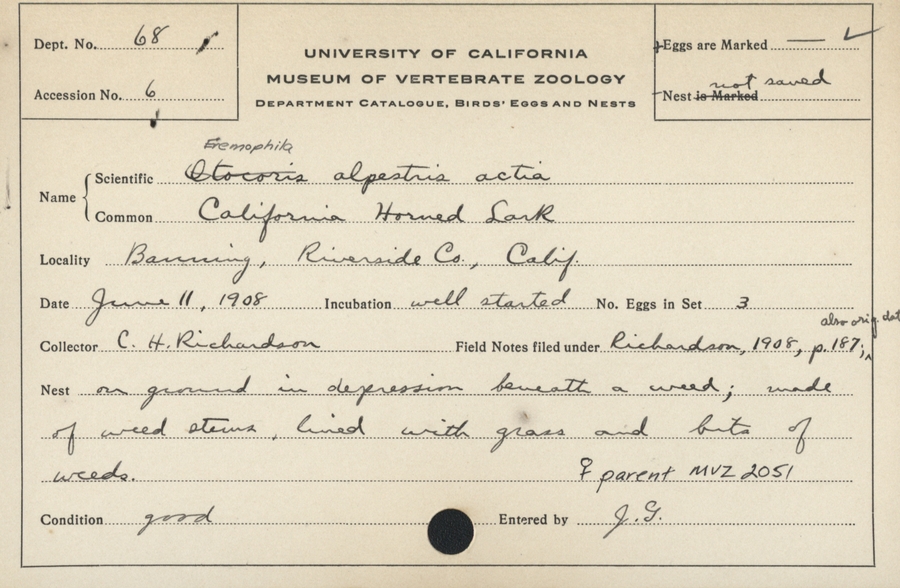 Dept. No. 68
UNIVERSITY OF CALIFORNIA
MUSEUM OF VERTEBRATE ZOOLOGY
DEPARTMENT CATALOGUE, BIRDS' EGGS AND NESTS
Eggs are Marked — ✓
Accession No. 6
not saved
Nest is Marked
Eremophila
Name { Scientific Otocoris alpestris actia
Common California Horned Lark
Locality Banning, Riverside Co., Calif.
Date June 11, 1908 Incubation well started No. Eggs in Set 3
also orig. dat
Collector C. H. Richardson Field Notes filed under Richardson, 1908, p. 187;
Nest on ground in depression beneath a weed; made
of weed stems, lined with grass and bits of
weeds. ♀ parent MVZ 2051
Condition good Entered by J.G.